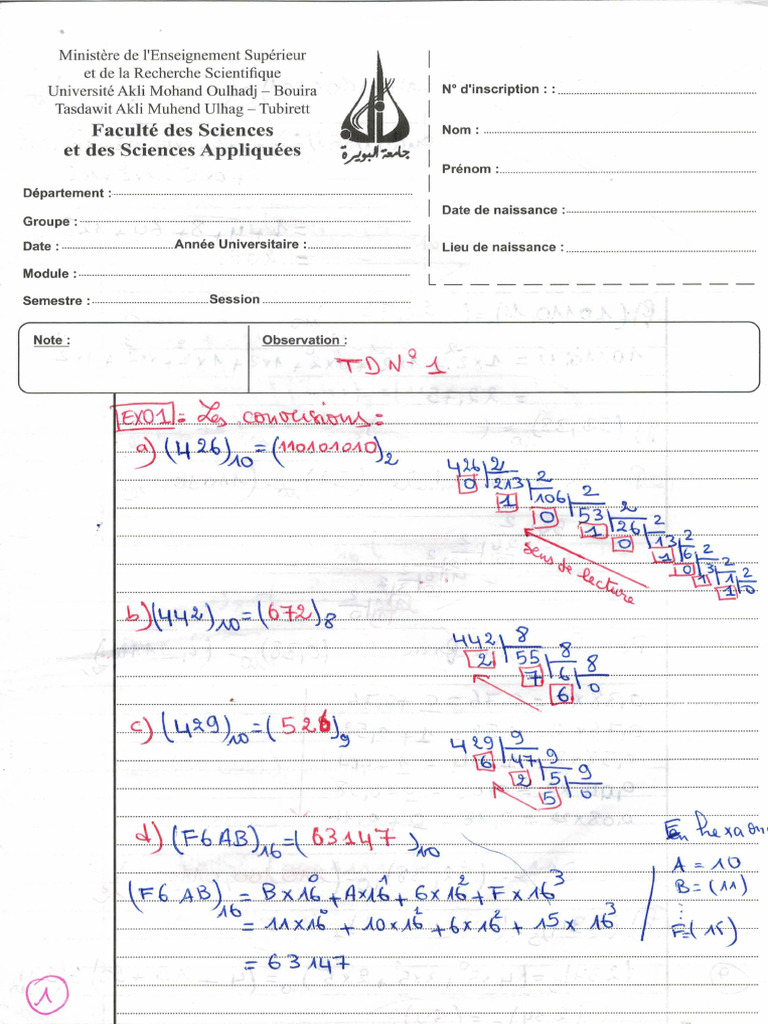 Ministère de l'Enseignement Supérieur
et de la Recherche Scientifique
Université Akli Mohand Oulhadj – Bouira
Tasdawit Akli Muhend Ulhag – Tubirett
Faculté des Sciences
et des Sciences Appliquées
جامعة البويرة
Département :
Groupe :
Date : Année Universitaire :
Module :
Semestre : Session
N° d'inscription : :
Nom :
Prénom :
Date de naissance :
Lieu de naissance :
Note :
Observation :
TDN° 1
EX01 : Les conversions :
a) (426)10 = (110101010)2
426 2
0 213 2
1 106 2
0 53 2
1 26 2
0 13 2
1 6 2
0 3 2
1 1 2
1 0
sens de lecture
b) (442)10 = (672)8
442 8
2 55 8
7 6 8
6 0
c) (429)10 = (526)9
429 9
6 47 9
2 5 9
5 0
d) (F6AB)16 = (63147)10
En hexa
A = 10
B = (11)
:
F = (15)
(F6AB)16 = B×16^0 + A×16^1 + 6×16^2 + F×16^3
= 11×16^0 + 10×16^2 + 6×16^2 + 15 × 16^3
= 63147
1